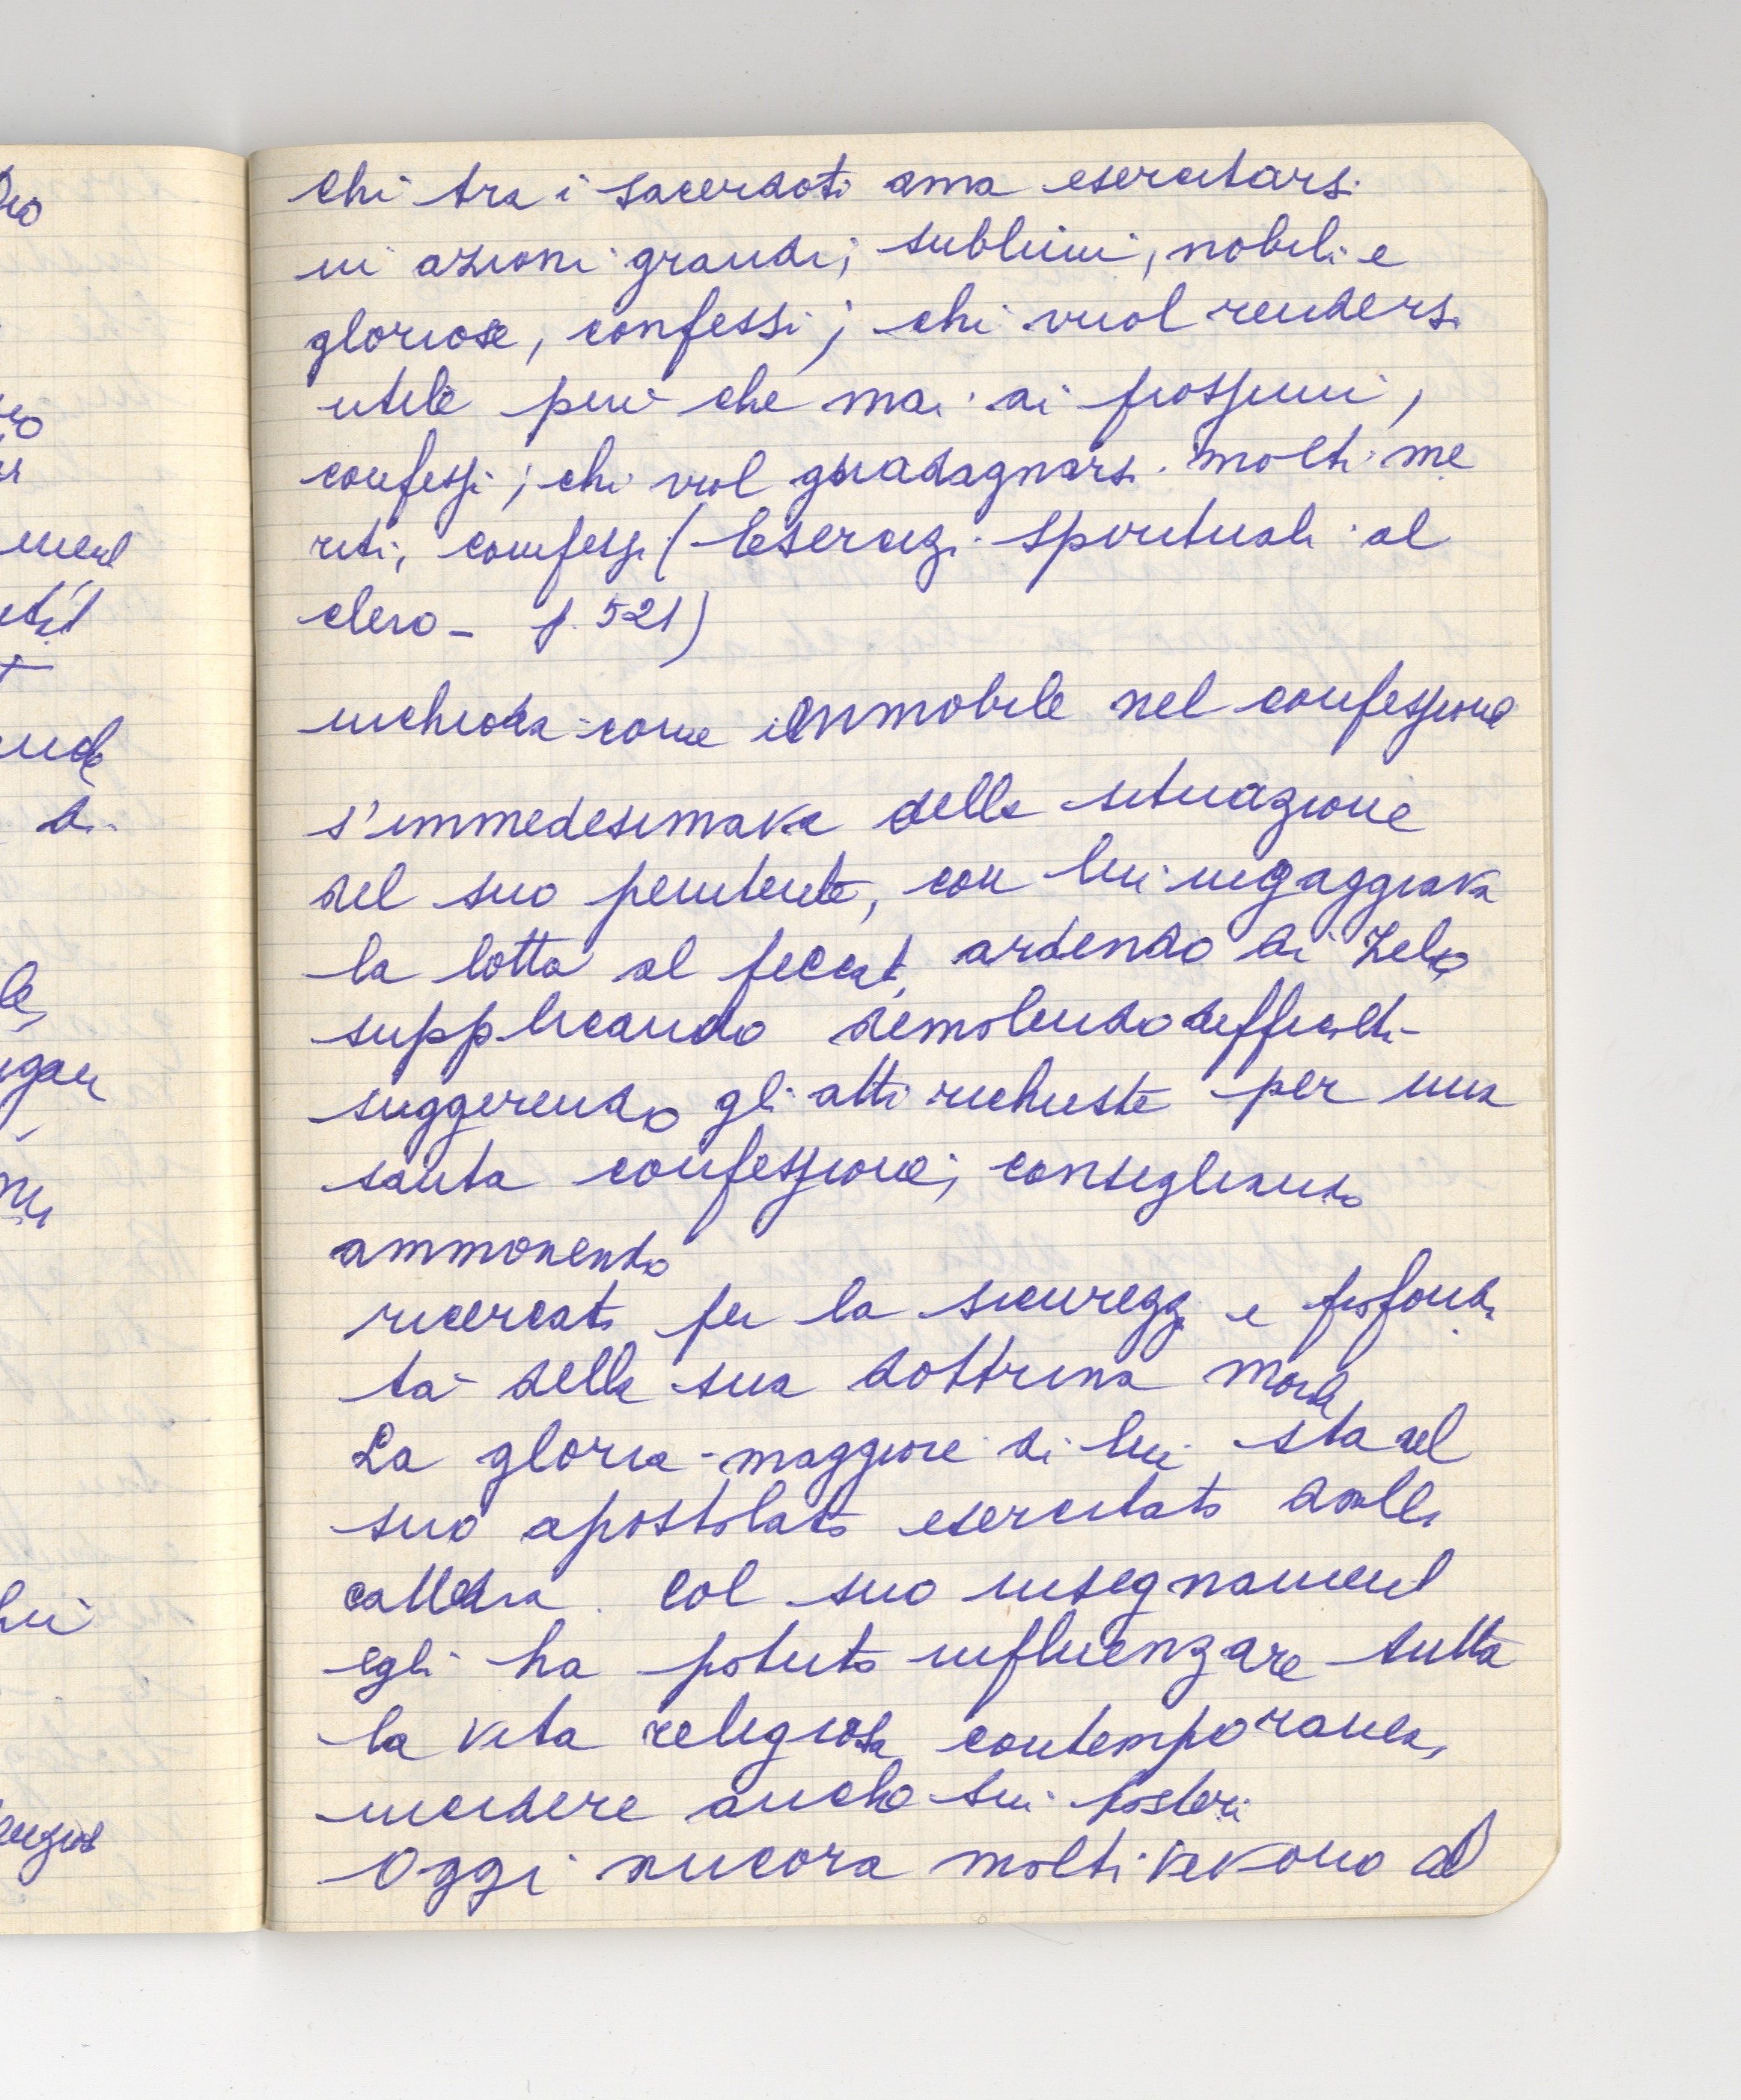 chi tra i sacerdoti ama esercitarsi
in azioni grandi, sublimi, nobili e
gloriose, confessi; chi vuol rendersi
utile più che mai ai prossimi,
confessi; chi vuol guadagnarsi molti me
riti, confessi (Esercizi Spirituali al
clero - p. 521)
inchioda come immobile nel confessional
s'immedesimava della situazione
del suo penitente, con lui ingaggiava
la lotta al peccat, ardendo di zelo,
supplicando demolendo difficolt
suggerendo gli atti richieste per una
santa confessione, consigliando
ammonendo
ricercato per la sicurezz e profondi
tà della sua dottrina moral
La gloria maggiore di lui sta nel
suo apostolato esercitato dalla
cattedra. Col suo insegnament
egli ha potuto influenzare tutta
la vita religiosa contemporanea,
incidere anche sui posteri
Oggi ancora molti vivono d